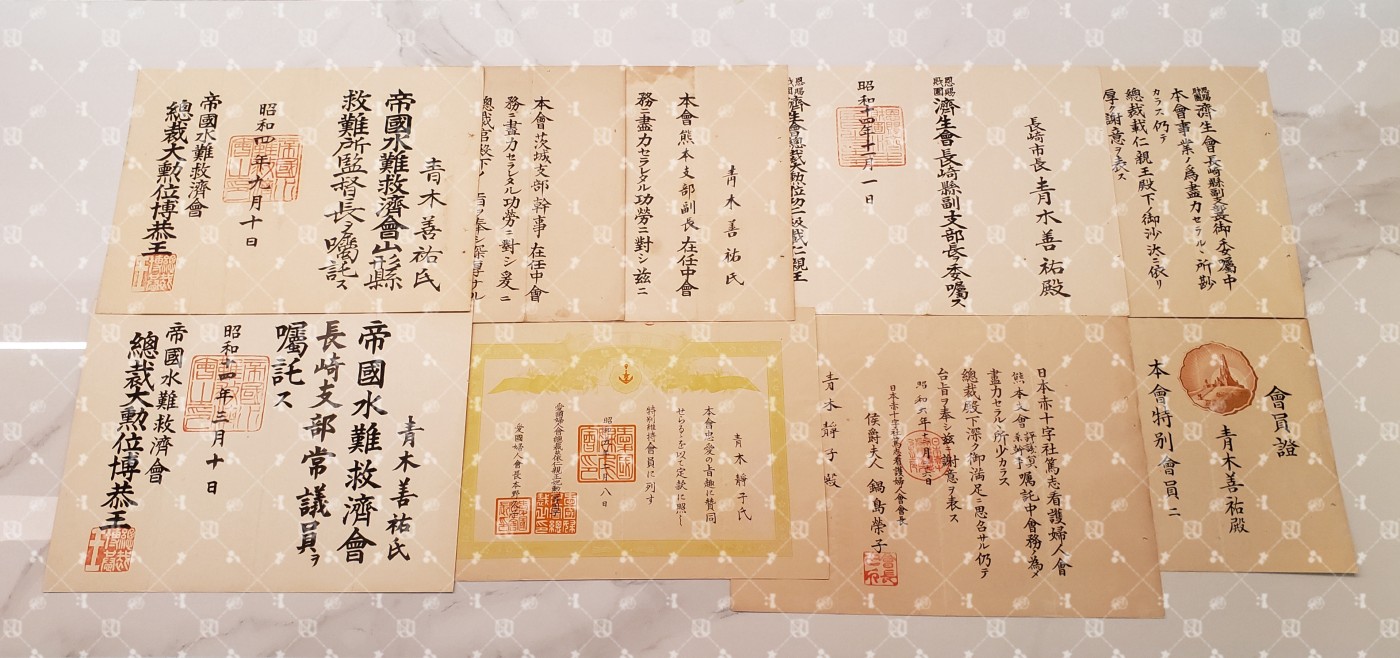 青木善祐氏
帝國水難救濟會山形縣
救難所監督長ヲ囑託ス
昭和四年九月十日
帝國水難救濟會
總裁大勲位博恭王
本會茨城支部幹事在任中會
務ニ盡力セラレタル功勞ニ對シ爰ニ
青木善祐氏
本會熊本支部副長在任中會
務ニ盡力セラレタル功勞ニ對シ茲ニ
長崎市長青木善祐殿
恩賜財團濟生會長崎縣副支部長ヲ委囑ス
昭和十四年十一月一日
恩賜財團濟生會總裁大勲位功二級載仁親王
恩賜財團濟生會長崎縣副支部長御委囑中
本會事業ノ爲盡力セラルヽ所尠
カラス仍テ
總裁載仁親王殿下ノ御沙汰ニ依リ
厚ク謝意ヲ表ス
青木善祐氏
帝國水難救濟會
長崎支部常議員ヲ
囑託ス
昭和十四年三月十日
帝國水難救濟會
總裁大勲位博恭王
青木靜子氏
本會忠愛の旨趣に賛同
せらるゝを以て定款に照し
特別維持會員に列す
日本赤十字社篤志看護婦人會
熊本支會
囑託中會務ノ爲メ
盡力セラルヽ所少カラス
總裁殿下深ク御滿足ニ思召サル仍テ
台旨ヲ奉シ茲ニ謝意ヲ表ス
日本赤十字社篤志看護婦人會會長
侯爵夫人 鍋島榮子
青木靜子殿
會員證
青木善祐殿
本會特別會員ニ